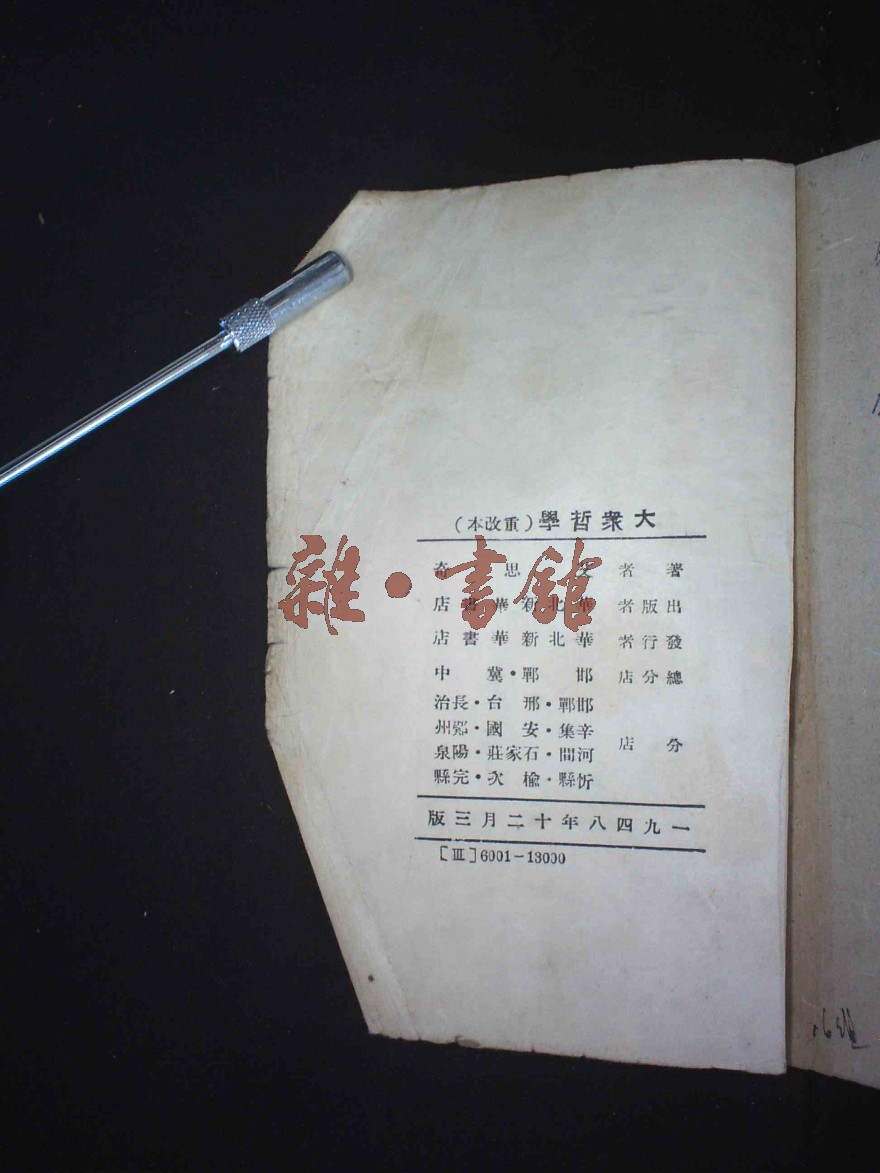 大衆哲學（重改本）
著者 艾思奇
出版者 華北新華書店
發行者 華北新華書店
總分店 邯鄲・冀中
分店
邯鄲・邢台・長治
辛集・安國・鄭州
河間・石家莊・陽泉
忻縣・榆次・完縣
一九四八年十二月三版
[Ⅲ]6001-13000
雜・書館